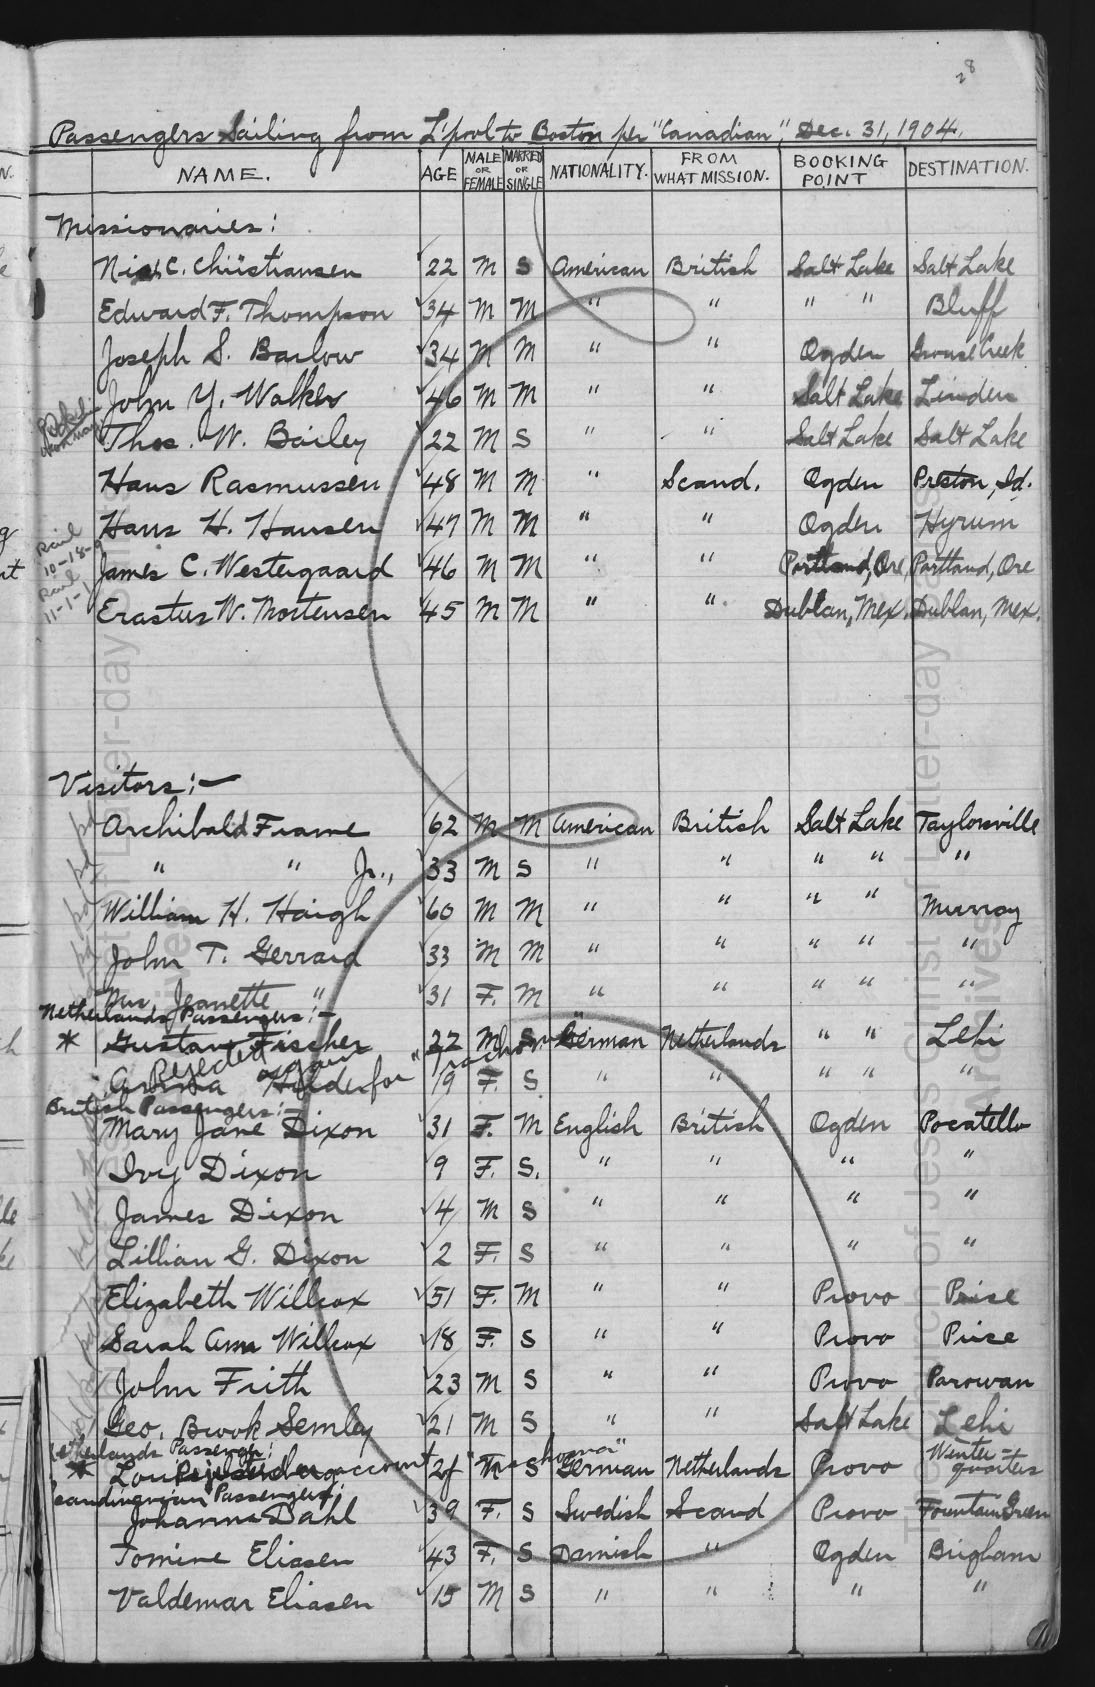 28
Passengers Sailing from L'pool to Boston per "Canadian", Dec. 31, 1904.
NAME. AGE MALE OR FEMALE MARRIED OR SINGLE NATIONALITY. FROM WHAT MISSION. BOOKING POINT DESTINATION.
Missionaries:
C. Christiansen 22 M S American British Salt Lake Salt Lake
Edward F. Thompson 34 M M " " " " Bluff
Joseph S. Barlow 34 M M " " Ogden Grouse Creek
John Y. Walker 46 M M " " Salt Lake Linden
Thos. W. Bailey 22 M S " " Salt Lake Salt Lake
Hans Rasmussen 48 M M " Scand. Ogden Preston, Id.
Hans H. Hansen 47 M M " " Ogden Hyrum
Rail 10-18-
James C. Westergaard 46 M M " " Portland, Ore, Portland, Ore
Rail 11-1-
Erastus W. Mortensen 45 M M " " Dublan, Mex. Dublan, Mex.
Visitors:—
Archibald Frame 62 M M American British Salt Lake Taylorsville
" " Jr., 33 M S " " " " "
William H. Haigh 60 M M " " " " Murray
John T. Gerrard 33 M M " " " " "
Mrs. Jeanette " 31 F. M " " " " "
Netherlands Passengers:—
* Gustave Fischer 22 M S German Netherlands " " Lehi
Rejected again
Anna 19 F. S " " " " "
British Passengers:
Mary Jane Dixon 31 F. M English British Ogden Pocatello
Ivy Dixon 9 F. S. " " " "
James Dixon 4 M S " " " "
Lillian G. Dixon 2 F. S " " " "
Elizabeth Willcox 51 F. M " " Provo Price
Sarah Ann Willcox 18 F. S " " Provo Price
John Frith 23 M S " " Provo Parowan
Geo. Brook Semley 21 M S " " Salt Lake Lehi
Netherlands Passengr:
* Rejected on account of "Trachoma" S German Netherlands Provo Winter-quarters
Scandinavian Passengers:
Johanna Dahl 39 F. S Swedish Scand Provo Fountain Green
Tomine Eliasen 43 F. S Danish " Ogden Brigham
Valdemar Eliasen 15 M S " " " "